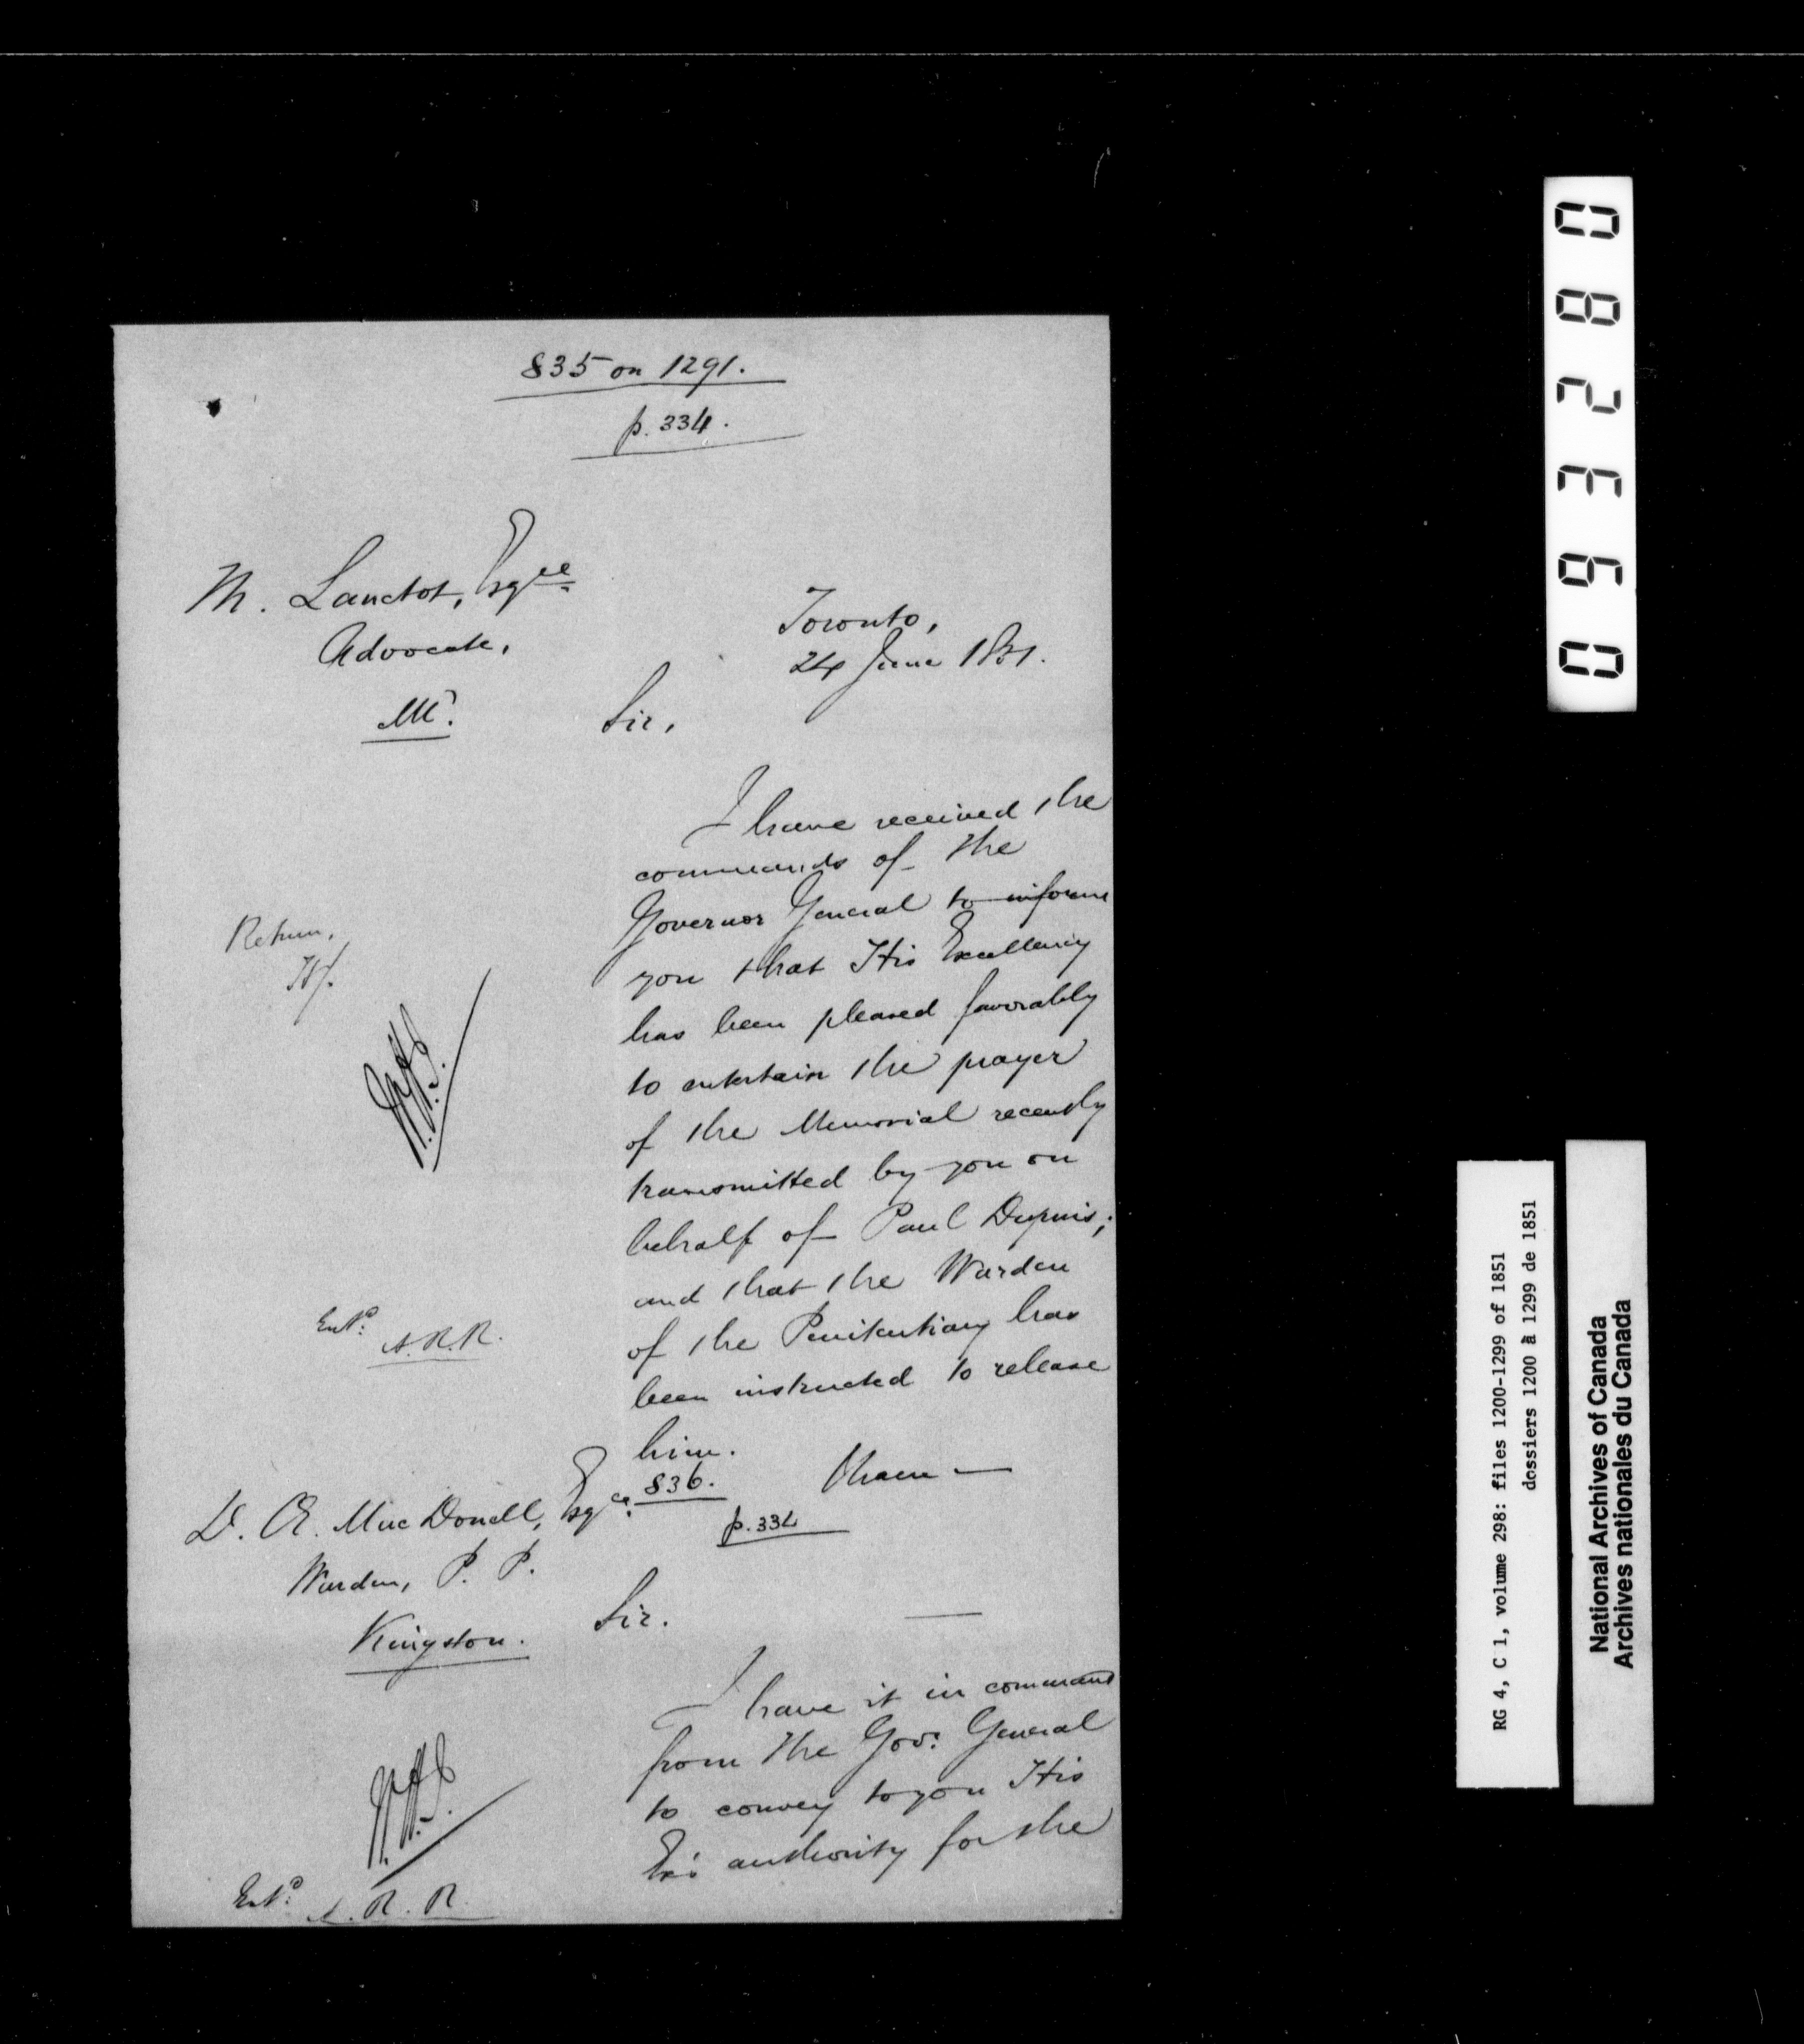 835 on 1291.
p. 334.
M. Lanctot, Esqre
Advocate,
Ml.
Toronto,
24 June 1851.
Sir,
I have received the
commands of the
Governor General to inform
you that His Excellency
has been pleased favorably
to entertain the prayer
of the Memorial recently
transmitted by you on
behalf of Paul Dupuis;
and that the Warden
of the Penitentiary has
been instructed to release
him.
Return,
Entd.
A.R.R.
836.
p. 334
D. Æ. MacDonell, Esqre.
Warden, P. P.
Kingston.
Sir.
I have it in command
from the Gov. General
to convey to you His
Ex's authority for the
Entd.
A. R. R.
093280
RG 4, C 1, volume 298: files 1200-1299 of 1851
dossiers 1200 à 1299 de 1851
National Archives of Canada
Archives nationales du Canada